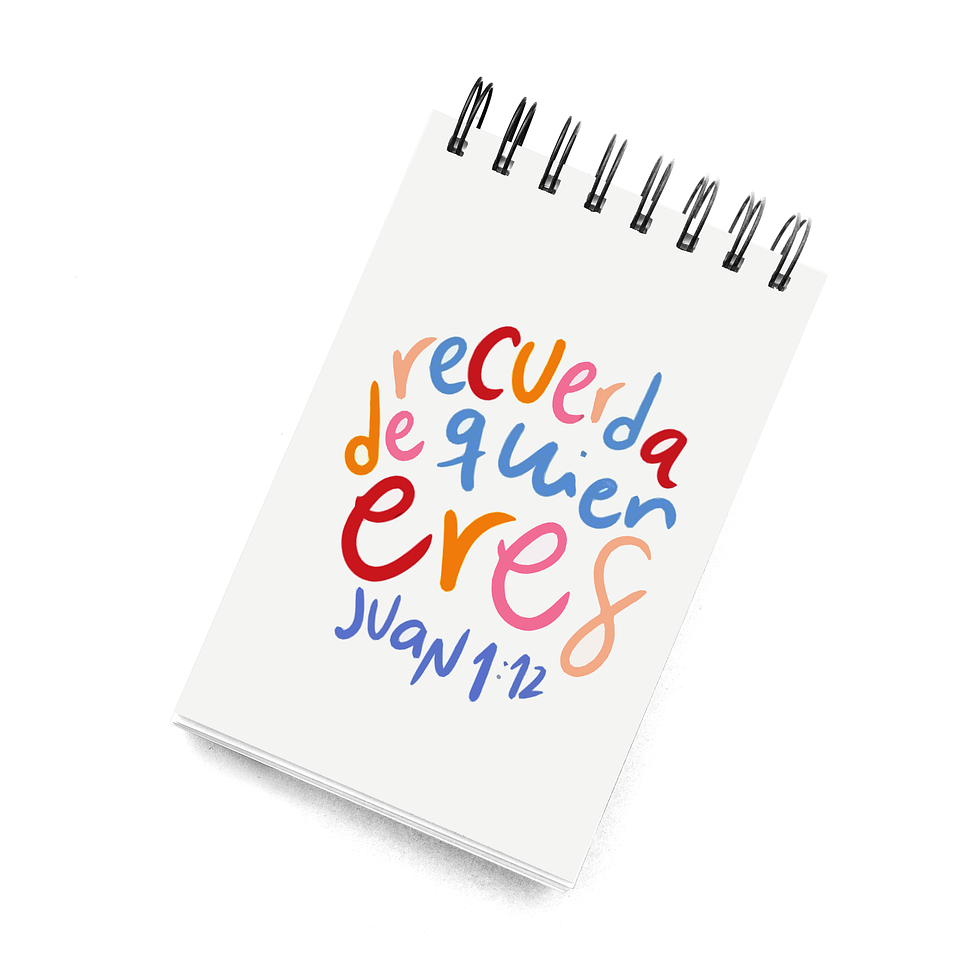 recuerda
de quien
eres
Juan 1:12